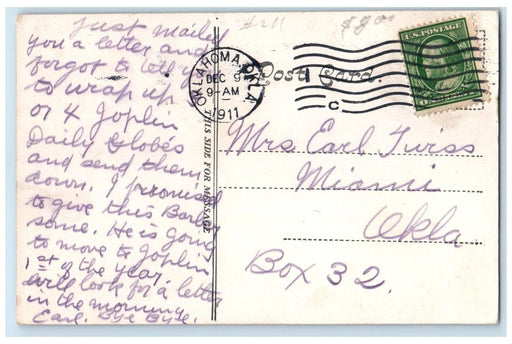 Just mailed
you a letter and
forgot to tell
to wrap up
or 4 Joplin
Daily Globes
and send them
down. I promised
to give this Barber
some. He is going
to move to Joplin
1st of the year.
Will look for a letter
in the morning
Earl. Bye Bye.
#211
$8.00
OKLAHOMA, OKLA
DEC 9
9-AM
1911
C
Post Card.
U.S. POSTAGE
THIS SIDE FOR MESSAGE
Mrs Earl Twiss
Miami
Okla
Box 32.